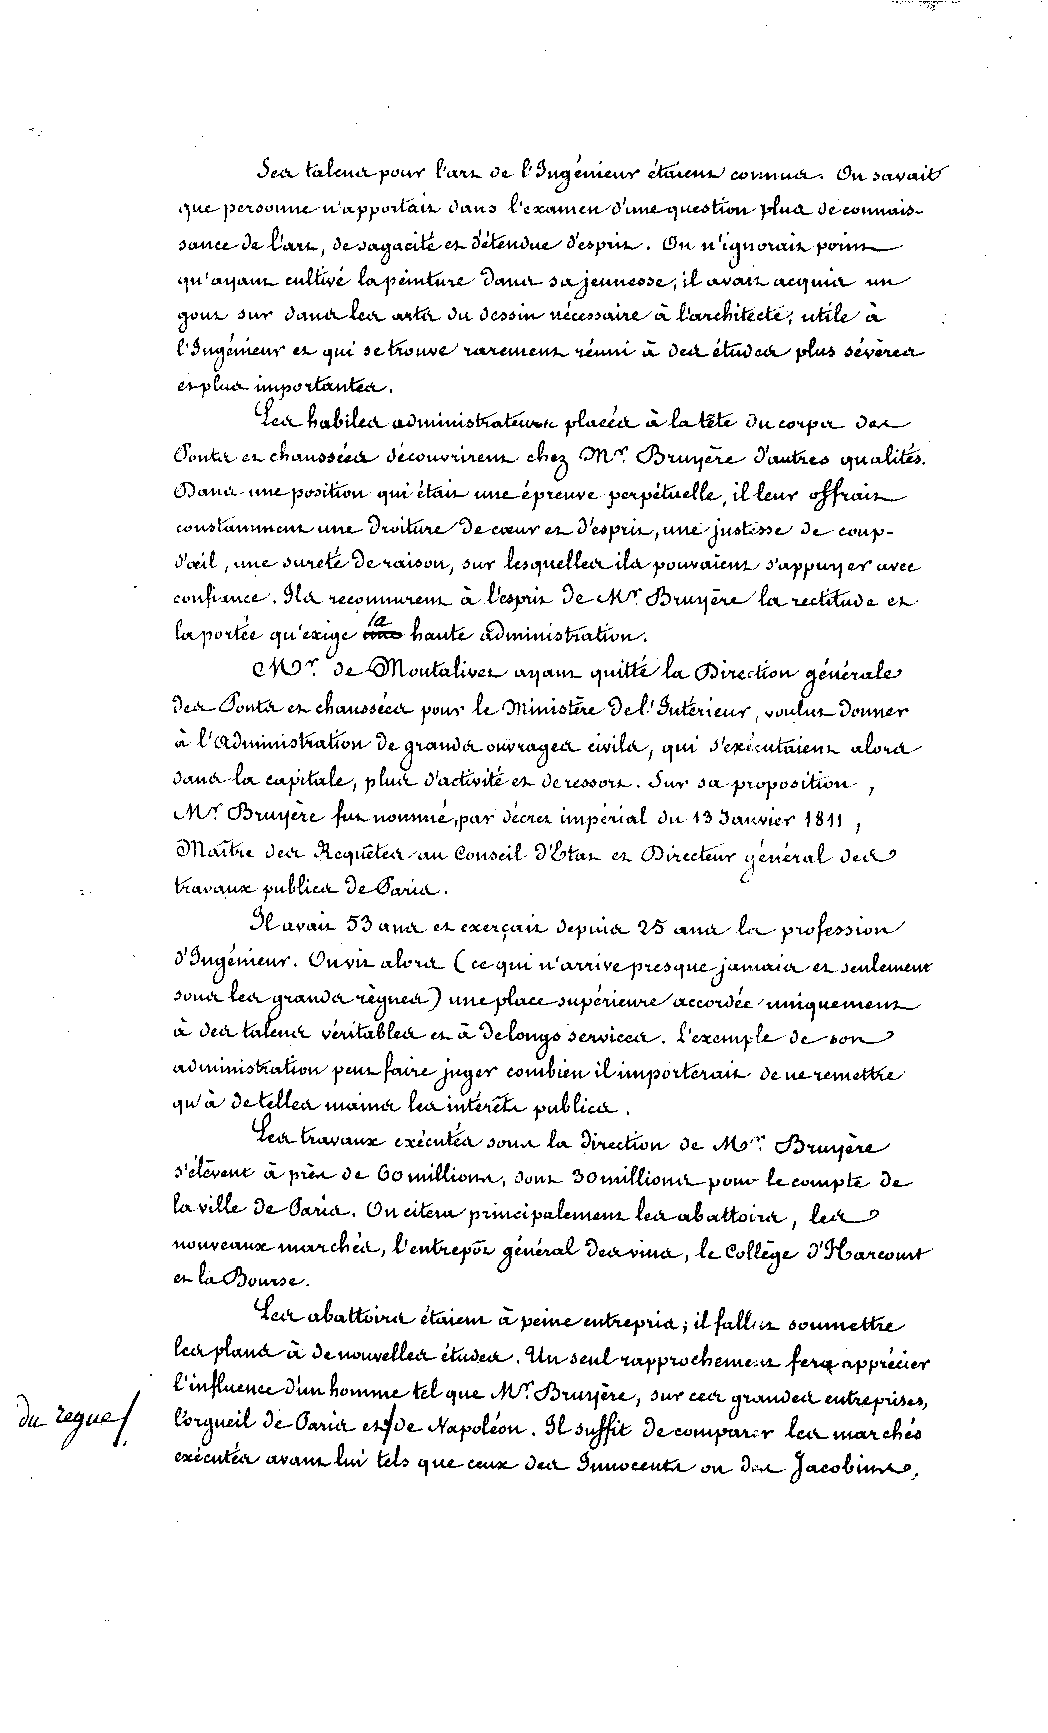 Ses talens pour l'art de l'Ingénieur étaient connus. On savait
que personne n'apportait dans l'examen d'une question plus de connais-
sance de l'art, de sagacité et d'étendue d'esprit. On n'ignorait point
qu'ayant cultivé la peinture dans sa jeunesse, il avait acquis un
gout sur dans les arts du dessin nécessaire à l'architecte, utile à
l'Ingénieur et qui se trouve rarement réuni à des études plus sévères
et plus importantes.
Les habiles administrateurs placés à la tête du corps des
Ponts et chaussées découvrirent chez Mr. Bruyère d'autres qualités.
Dans une position qui était une épreuve perpétuelle, il leur offrait
constamment une droiture de cœur et d'esprit, une justesse de coup-
d'œil, une sureté de raison, sur lesquelles ils pouvaient s'appuyer avec
confiance. Ils reconnurent à l'esprit de Mr. Bruyère la rectitude et
la portée qu'exige la haute administration.
Mr. de Montalivet ayant quitté la Direction générale
des Ponts et chaussées pour le Ministère de l'Intérieur, voulut donner
à l'Administration de grands ouvrages civils, qui s'exécutaient alors
dans la capitale, plus d'activité et de ressort. Sur sa proposition,
Mr. Bruyère fut nommé, par décret impérial du 13 Janvier 1811,
Maître des Requêtes au Conseil d'Etat et Directeur général des
travaux publics de Paris.
Il avait 53 ans et exerçait depuis 25 ans la profession
d'Ingénieur. On vit alors (ce qui n'arrive presque jamais et seulement
sous les grands règnes) une place supérieure accordée uniquement
à des talens véritables et à de longs services. L'exemple de son
administration peut faire juger combien il importerait de ne remettre
qu'à de telles mains les intérêts publics.
Les travaux exécutés sous la direction de Mr. Bruyère
s'élèvent à près de 60 millions, dont 30 millions pour le compte de
la ville de Paris. On citera principalement les abattoirs, les
nouveaux marchés, l'entrepôt général des vins, le Collège d'Harcourt
et la Bourse.
Les abattoirs étaient à peine entrepris; il fallut soumettre
les plans à de nouvelles études. Un seul rapprochement fera apprécier
l'influence d'un homme tel que Mr. Bruyère, sur ces grandes entreprises,
du regne/ l'orgueil de Paris et/de Napoléon. Il suffit de comparer les marchés
exécutés avant lui tels que ceux des Innocents ou des Jacobins,